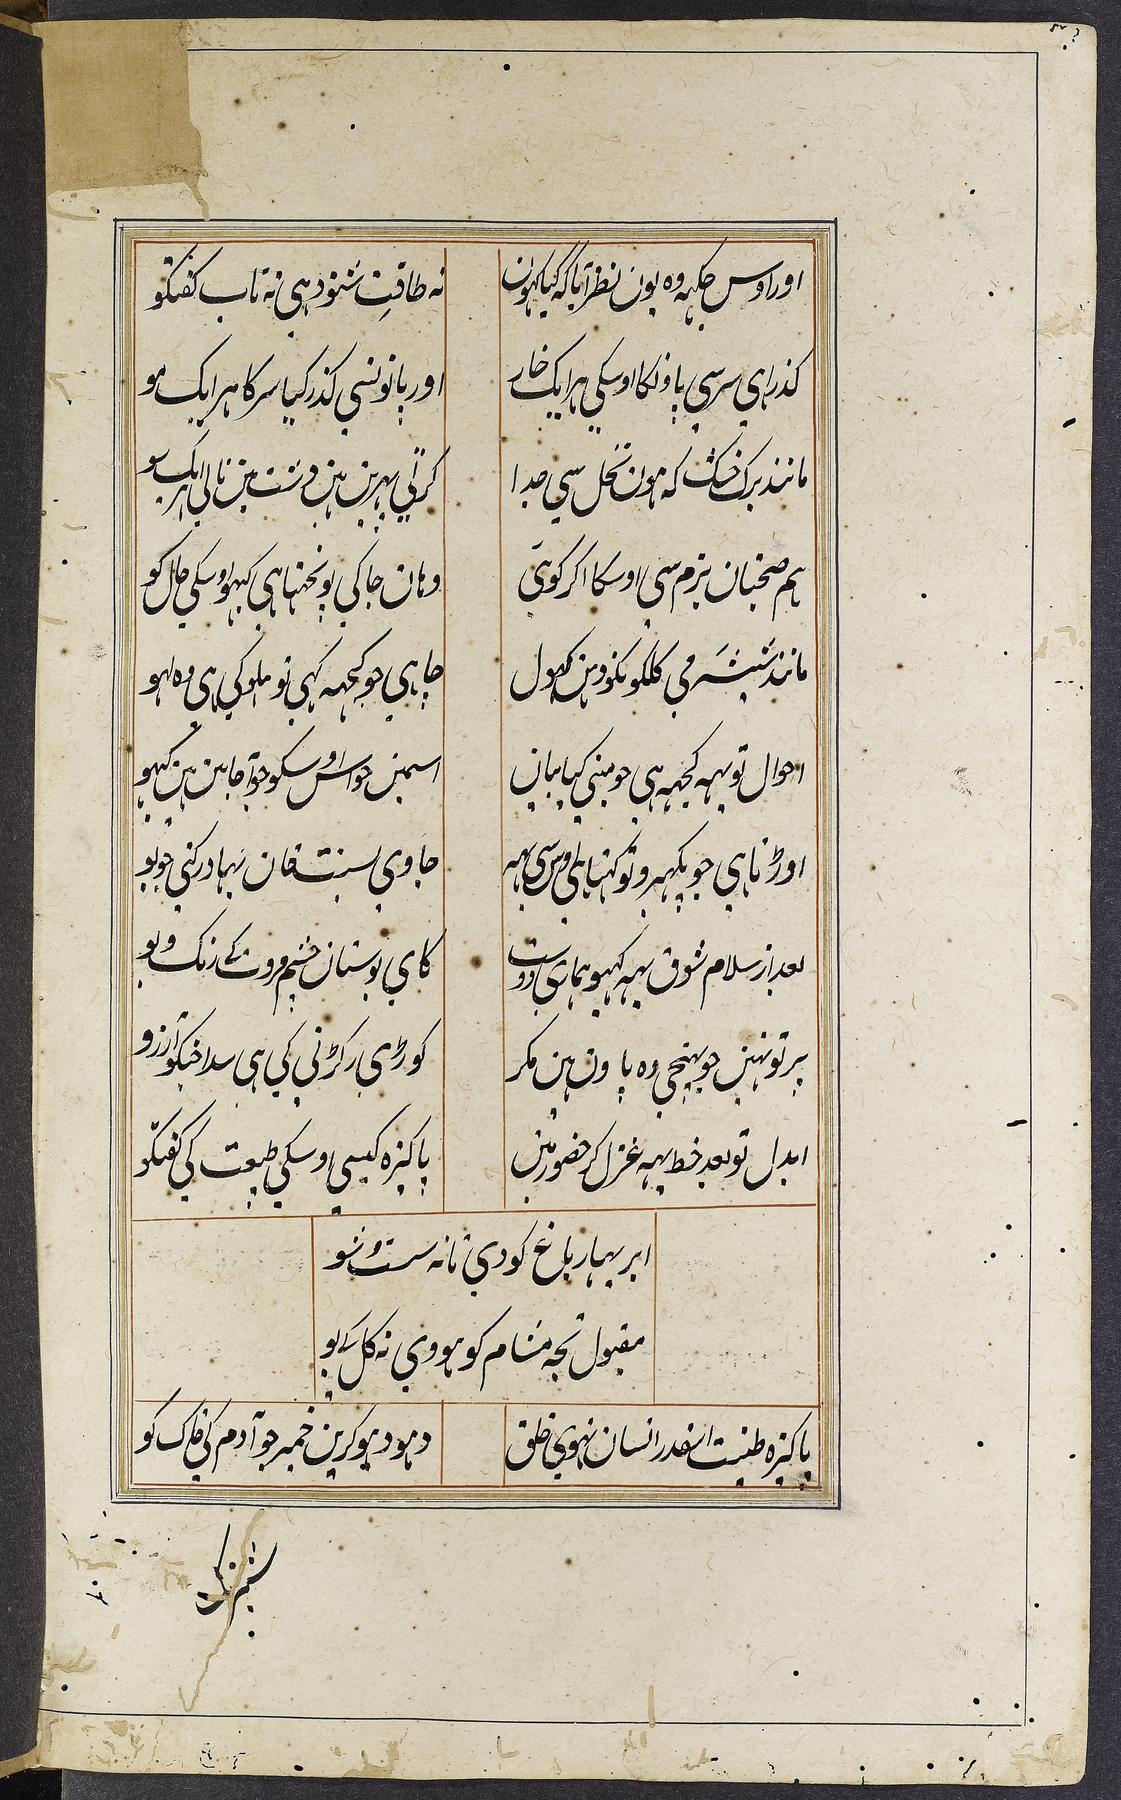 اور اوس جکهہ وہ یون نظر آیا کہ کیا کہون نہ طاقتِ شنود ہی نہ تاب کفتکو
کذرا ہی سرسی پاونکا اوسکی ہر ایک خار اور پانونسی کذر کیا سر کا ہر ایک مو
مانند برک خشک کہ ہون نخل سی جدا کرتی پہرین ہین دشت مین نالی ہر ایک سو
ہم صحبتان بزم سی اوسکا اکر کوئی وہان جا کی پونچهتا ہی کبهو اوسکی حال کو
مانند شیشہ می کلکو نکو وہین کهول چاہی جو کچهہ کہی تو کی ہی وہ لہو
احوال تو یہہ کچهہ ہی جو مینی کیا بیان اسمین حواس اوسکو جو آجاہین ہین کبهو
اوڑتا ہی جو پکهیرو تو کہتا ہی اوس سی یہہ جاوی بسنت خان بہادر کنی جو تو
بعد از سلام شوق یہہ کہیو ہماری دوست کای بوستان چشم مروت کے رنک و بو
پر تو نہین جو پہنچی وہ پاون ہین مکر کوڑی رکڑنی کی ہی سدا جنکو آرزو
ایدل تو بعد خط یہہ غزل کر حضور مین پاکیزہ کیسی اوسکی طبیعت کی کفتکو
ابر بہار باغ کو دی تا نہ شست و شو
مقبول تجہ مشام کو ہووی نہ کل کے بو
پاکیزہ طینت اسقدر انسان نہووی خلق دہو دہو کرین خمیر جو آدم کی خاک کو